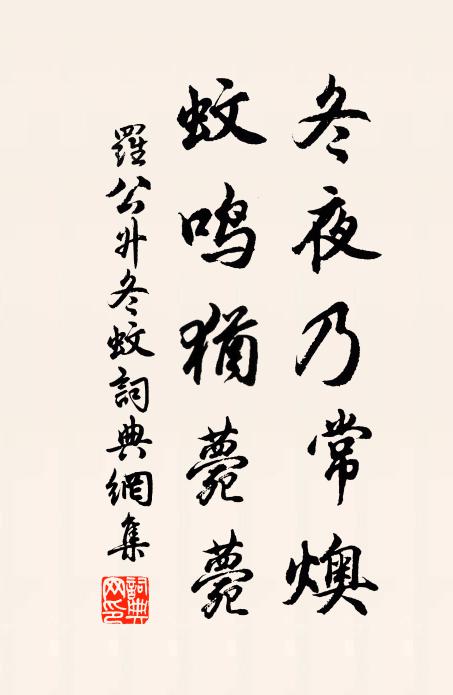 冬夜乃常燠
蚊鸣猶薨薨
羅公升冬蚊詞典網集
詞典网印